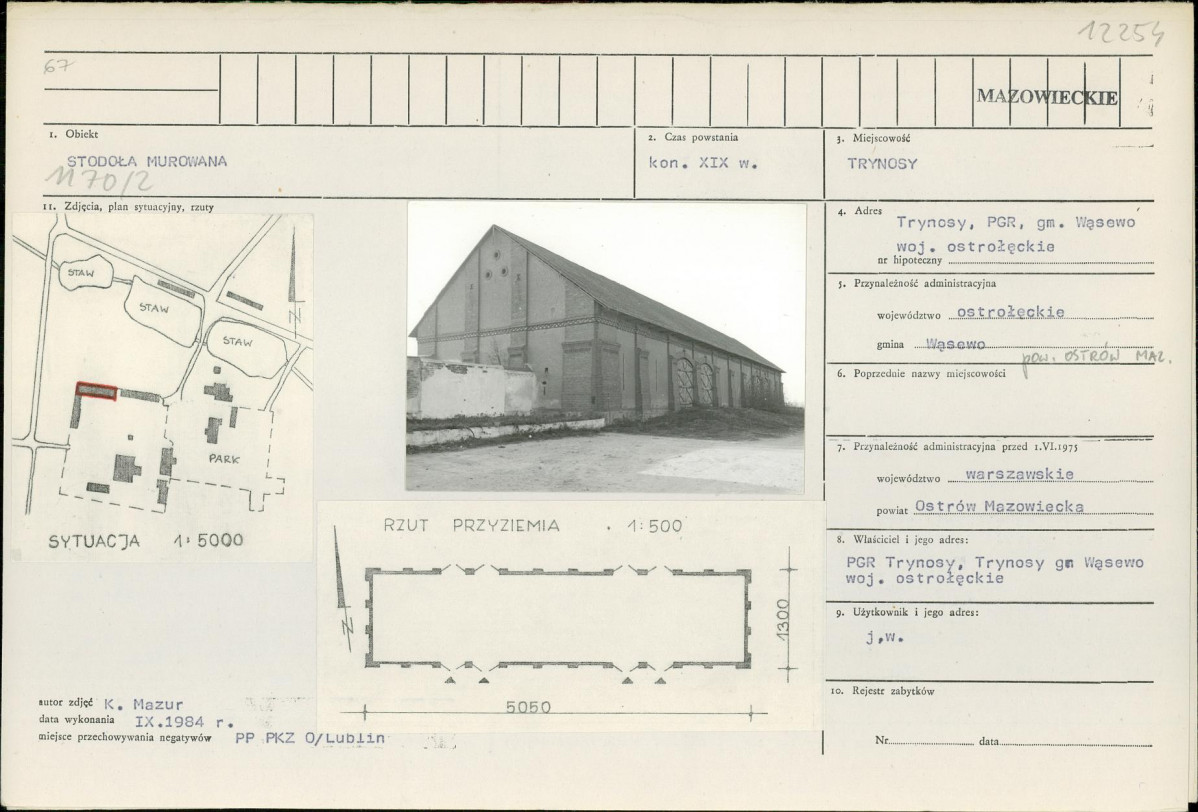 12254
67
MAZOWIECKIE
1. Obiekt
STODOŁA MUROWANA
1170/2
2. Czas powstania
kon. XIX w.
3. Miejscowość
TRYNOSY
11. Zdjęcia, plan sytuacyjny, rzuty
STAW
STAW
STAW
PARK
N
SYTUACJA 1:5000
RZUT PRZYZIEMIA 1:500
N
1300
5050
4. Adres
Trynosy, PGR, gm. Wąsewo
woj. ostrołęckie
nr hipoteczny
5. Przynależność administracyjna
województwo ostrołęckie
gmina Wąsewo
pow. OSTRÓW MAZ.
6. Poprzednie nazwy miejscowości
7. Przynależność administracyjna przed 1.VI.1975
województwo warszawskie
powiat Ostrów Mazowiecka
8. Właściciel i jego adres:
PGR Trynosy, Trynosy gm Wąsewo
woj. ostrołęckie
9. Użytkownik i jego adres:
j,w.
10. Rejestr zabytków
Nr. data
autor zdjęć K. Mazur
data wykonania IX.1984 r.
miejsce przechowywania negatywów PP PKZ O/Lublin